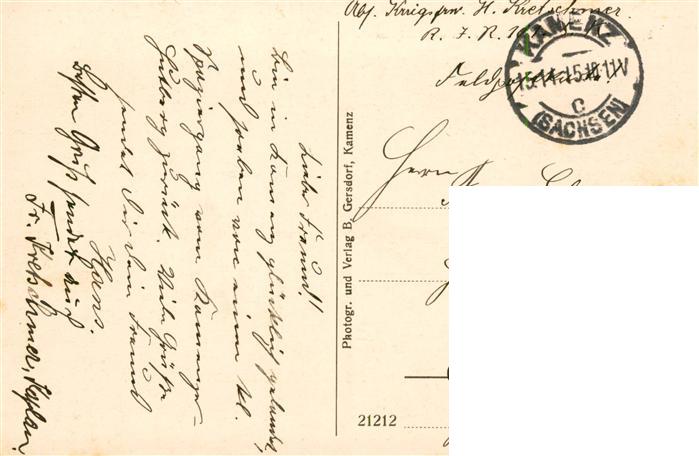 Abs. Kriegsfrw. H. Kretschmer.
R. I. R.
Feldpostkarte
KAMENZ
15.11.15. 11V
C
(SACHSEN)
Herrn
Lieber Freund!
Bin in Kamenz glücklich gelandet,
und soeben von einem kl.
Spaziergang vom Kamenzer-
Hutberg zurück. Viele Grüße
sendet Dir Dein Freund
Hans.
Besten Gruß sendet auch
Fr. Kretschmer, Kaplan.
Photogr. und Verlag B. Gersdorf, Kamenz
21212